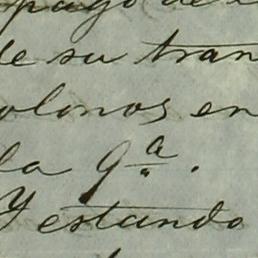 pago de
de su tran
olonos en
la 9ª.
Y estando